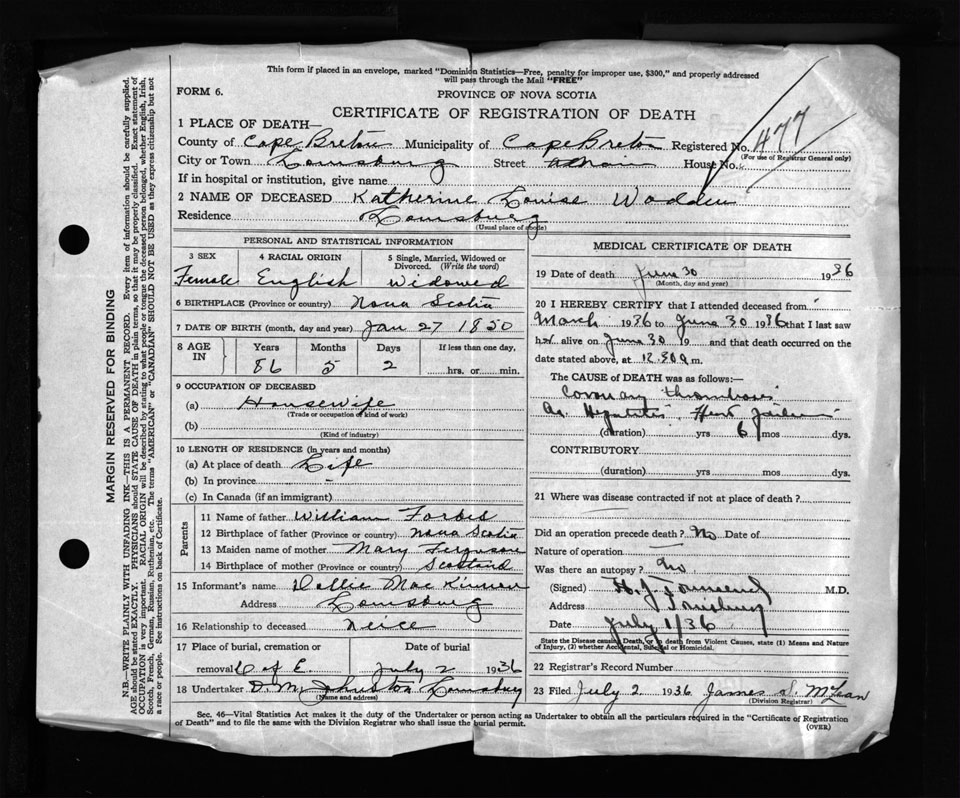 This form if placed in an envelope, marked "Dominion Statistics—Free, penalty for improper use, $300," and properly addressed
will pass through the Mail "FREE"
FORM 6.
PROVINCE OF NOVA SCOTIA
CERTIFICATE OF REGISTRATION OF DEATH
477
1 PLACE OF DEATH—
County of Cape Breton Municipality of Cape Breton Registered No.
(For use of Registrar General only)
City or Town Louisburg Street Main House No.
If in hospital or institution, give name
2 NAME OF DECEASED Katherine Louise Wadden
Residence Louisburg
(Usual place of abode)
PERSONAL AND STATISTICAL INFORMATION
3 SEX 4 RACIAL ORIGIN 5 Single, Married, Widowed or Divorced. (Write the word)
Female English Widowed
6 BIRTHPLACE (Province or country) Nova Scotia
7 DATE OF BIRTH (month, day and year) Jan 27 1850
8 AGE IN Years Months Days If less than one day,
86 5 2 hrs. or min.
9 OCCUPATION OF DECEASED
(a) Housewife
(Trade or occupation of kind of work)
(b)
(Kind of industry)
10 LENGTH OF RESIDENCE (in years and months)
(a) At place of death Life
(b) In province -
(c) In Canada (if an immigrant)
Parents
11 Name of father William Forbes
12 Birthplace of father (Province or country) Nova Scotia
13 Maiden name of mother Mary Ferguson
14 Birthplace of mother (Province or country) Scotland
15 Informant's name Dollie MacKinnon
Address Louisburg
16 Relationship to deceased Neice
17 Place of burial, cremation or Date of burial
removal C of E. July 2 1936
18 Undertaker D. M. Johnston Louisburg
(Name and address)
MEDICAL CERTIFICATE OF DEATH
19 Date of death June 30 1936
(Month, day and year)
20 I HEREBY CERTIFY that I attended deceased from
March 1936 to June 30 1936 that I last saw
her alive on June 30 19 and that death occurred on the
date stated above, at 12.30 a m.
The CAUSE OF DEATH was as follows:—
Coronary thrombosis
Heart failure
(duration) yrs 6 mos dys.
CONTRIBUTORY
(duration) yrs. mos dys.
21 Where was disease contracted if not at place of death?
Did an operation precede death? No Date of
Nature of operation
Was there an autopsy? No
(Signed) M.D.
Address Louisburg
Date July 1/36
State the Disease causing Death, or in death from Violent Causes, state (1) Means and Nature of Injury, (2) whether Accidental, Suicidal or Homicidal.
22 Registrar's Record Number
23 Filed July 2 1936 James D. McLean
(Division Registrar)
Sec. 46—Vital Statistics Act makes it the duty of the Undertaker or person acting as Undertaker to obtain all the particulars required in the "Certificate of Registration
of Death" and to file the same with the Division Registrar who shall issue the burial permit.
(OVER)
MARGIN RESERVED FOR BINDING
N.B.—WRITE PLAINLY WITH UNFADING INK—THIS IS A PERMANENT RECORD. Every item of information should be carefully supplied.
AGE should be stated EXACTLY. PHYSICIANS should STATE CAUSE OF DEATH in plain terms, so that it may be properly classified. Exact statement of
OCCUPATION is very important. RACIAL ORIGIN will be described by stating to what people or tongue the deceased person belonged, whether English, Irish,
Scotch, French, German, Russian, Ruthenian, etc. The terms "AMERICAN" or "CANADIAN" SHOULD NOT BE USED as they express citizenship but not
a race or people. See instructions on back of Certificate.